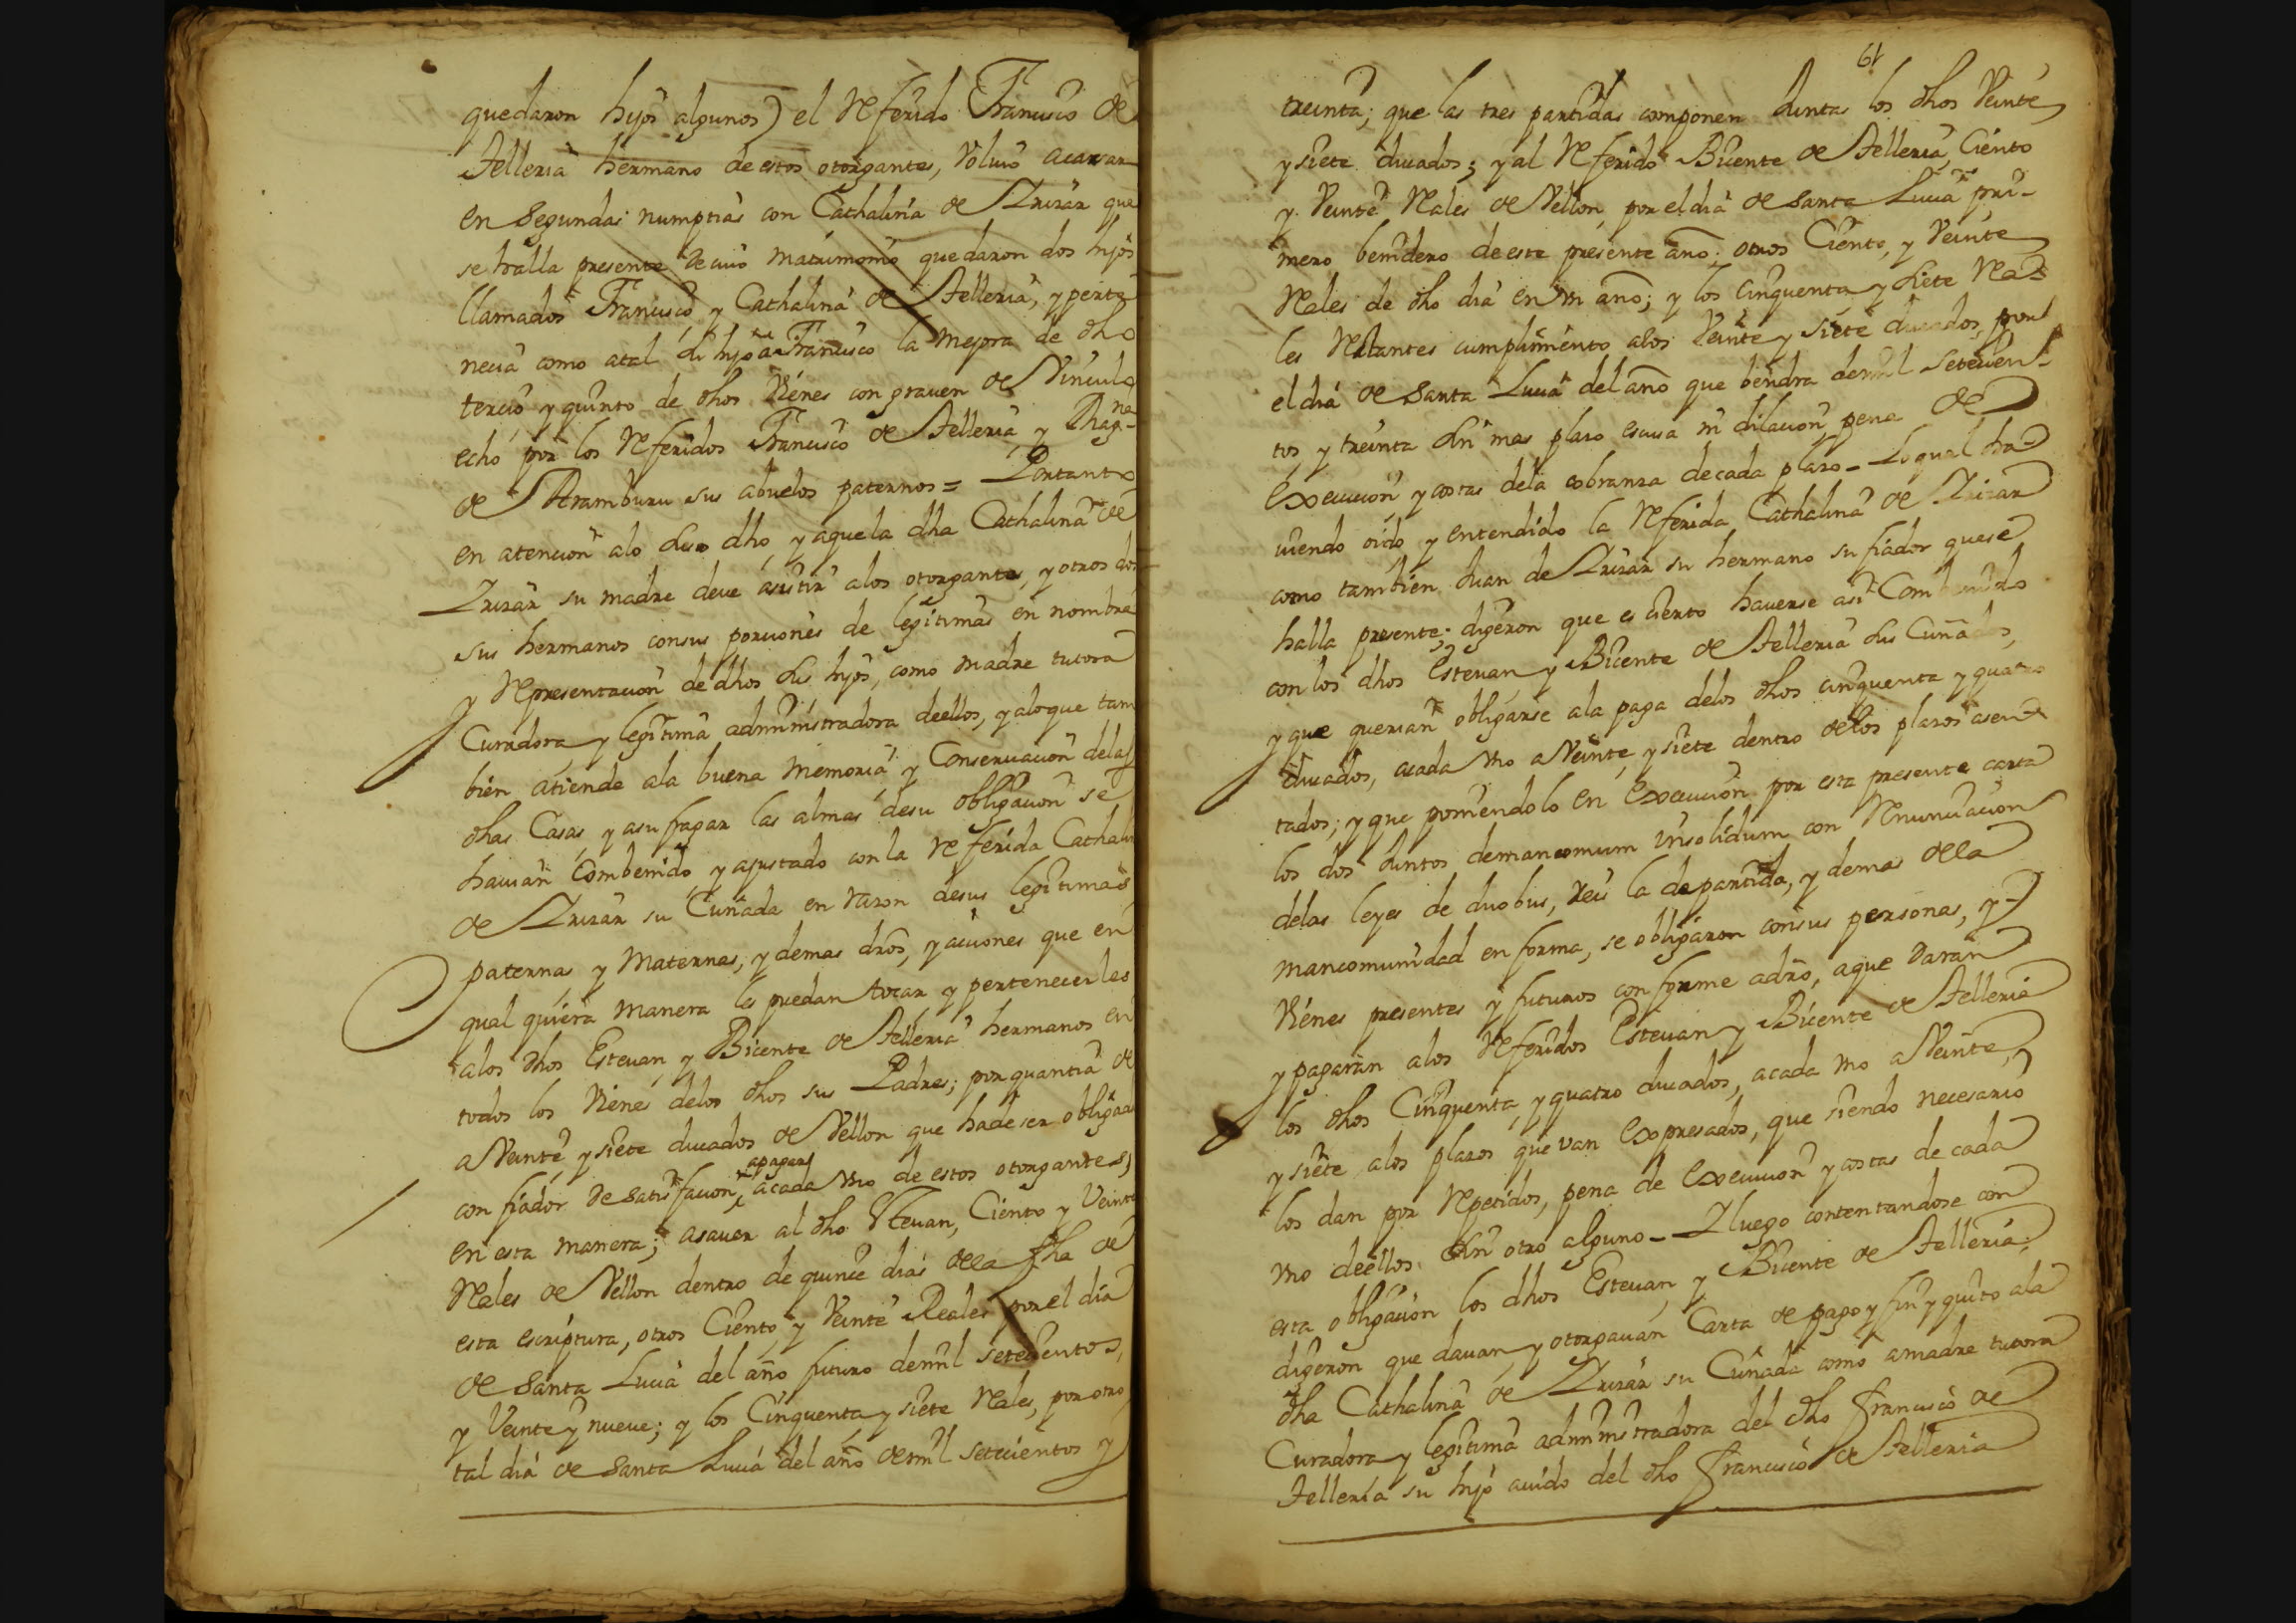 quedaron hijos algunos) el Referido Francisco de
Telleria hermano de estos otorgantes, Volvio acassar
en Segundas numptias con Cathalina de Yrizar que
se halla presente de cuio matrimonio quedaron dos hijos
llamados Francisco y Cathalina de Telleria, y perte
necia como atal su hijo a Francisco la mejora de dho
tercio, y quinto de dhos Vienes con graven de Vinculo
echo por los Referidos Francisco de Telleria y
de Aramburu sus abuelos paternos = Portanto
en atencion alo suso dho, y aque la dha Cathalina de
Yrizar su madre deve asistir alos otorgantes, y otros dos
sus hermanos consus porciones de legitimas en nombre
y Representacion de dhos sus hijos, como madre tutora
Curadora, y legitima administradora deellos, y aloque tam
bien atiende ala buena memoria, y Conservacion delas
dhas Casas, y asufragar las almas desu obligacion se
havian Combenido, y ajustado con la referida Cathali
de Yrizar su Cuñada en razon desus legitimas
paternas y Maternas, y demas dros, y acciones que en
qual quiera manera les puedan tocar y pertenecerles
alos dhos Estevan y Bicente de Telleria hermanos en
todos los Vienes delos dhos sus Padres; por quantia de
a Veinte, y siete ducados de Vellon que hadeser obligada
con fiador de satisfacion, apagar acada vno de estos otorgantes,
en esta manera; asaver al dho Estevan, Ciento y Veinte
Reales de Vellon dentro de quince dias dela fha de
esta escriptura, otros Ciento, y Veinte Reales por el dia
de Santa Lucia del año futuro demil setecientos,
y Veinte y nueve; y los Cinquenta y siete Reales, por otro
tal dia de Santa Lucia del año demil setecientos y
61
treinta; que las tres partidas componen Juntas los dhos Veinte
y siete ducados; y al Referido Bicente de Telleria, Ciento
y Veinte Reales de Vellon por el dia de Santa Lucia pri-
mero benidero de este presente año; otros Ciento, y Veinte
Reales de dho dia en vn año; y los Cinquenta, y Siete Rea-
les Restantes cumplimiento alos Veinte y siete ducados, por
el dia de Santa Lucia del año que bendra demil Setecien-
tos y treinta Sin mas plazo escusa ni dilacion, pena de
Execucion, y costas dela cobranza de cada plazo - Loqual ha-
viendo oido y entendido la Referida Cathalina de Yrizar
como tambien Juan de Yrizar su hermano su fiador quese
halla presente; digeron que es cierto haverse asi Combenido
con los dhos Estevan y Bicente de Telleria sus Cuñados,
y que querian obligarse ala paga delos dhos cinquenta y quatro
ducados, acada vno a Veinte, y siete dentro delos plazos asen-
tados; y que poniendolo en Execucion por esta presente carta
los dos Juntos demancomum insolidum con Renunciacion
delas leyes de duobus, reis la de partida, y demas dela
mancomunidad en forma, se obligaron consus personas, y
Vienes presentes y futuros conforme adro, aque daran
y pagaran alos Referidos Estevan y Bicente de Telleria
los dhos Cinquenta, y quatro ducados, acada vno a Veinte,
y siete alos plazos que van Expresados, que siendo necesario
los dan por Repetidos, pena de Execucion y costas de cada
vno deellos Sin otro alguno - Y luego contentandose con
esta obligacion los dhos Estevan, y Bicente de Telleria;
digeron que davan, y otorgavan Carta de pago y fin y quito ala
dha Cathalina de Yrizar su Cuñada como amadre tutora
Curadora y legitima administradora del dho Francisco de
Telleria su hijo avido del dho Francisco de Telleria